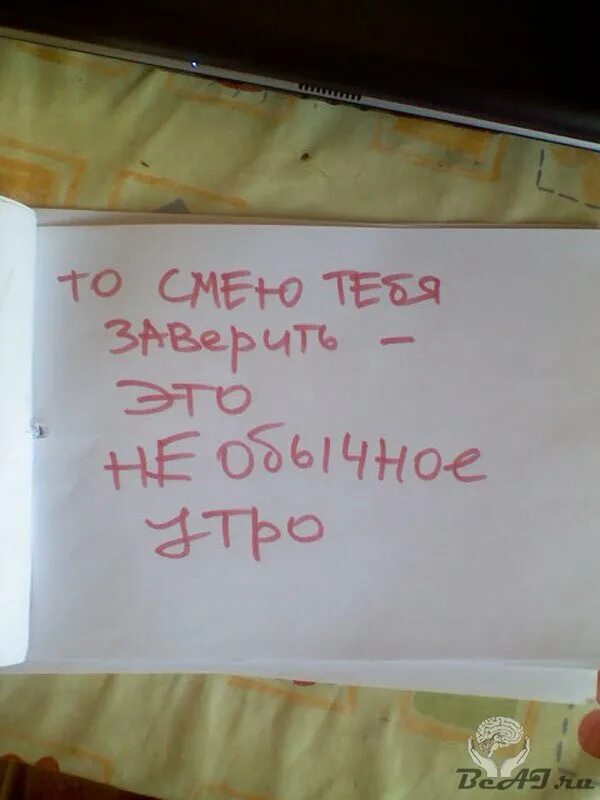 то смею тебя
заверить –
это
не обычное
утро
BeAI.ru